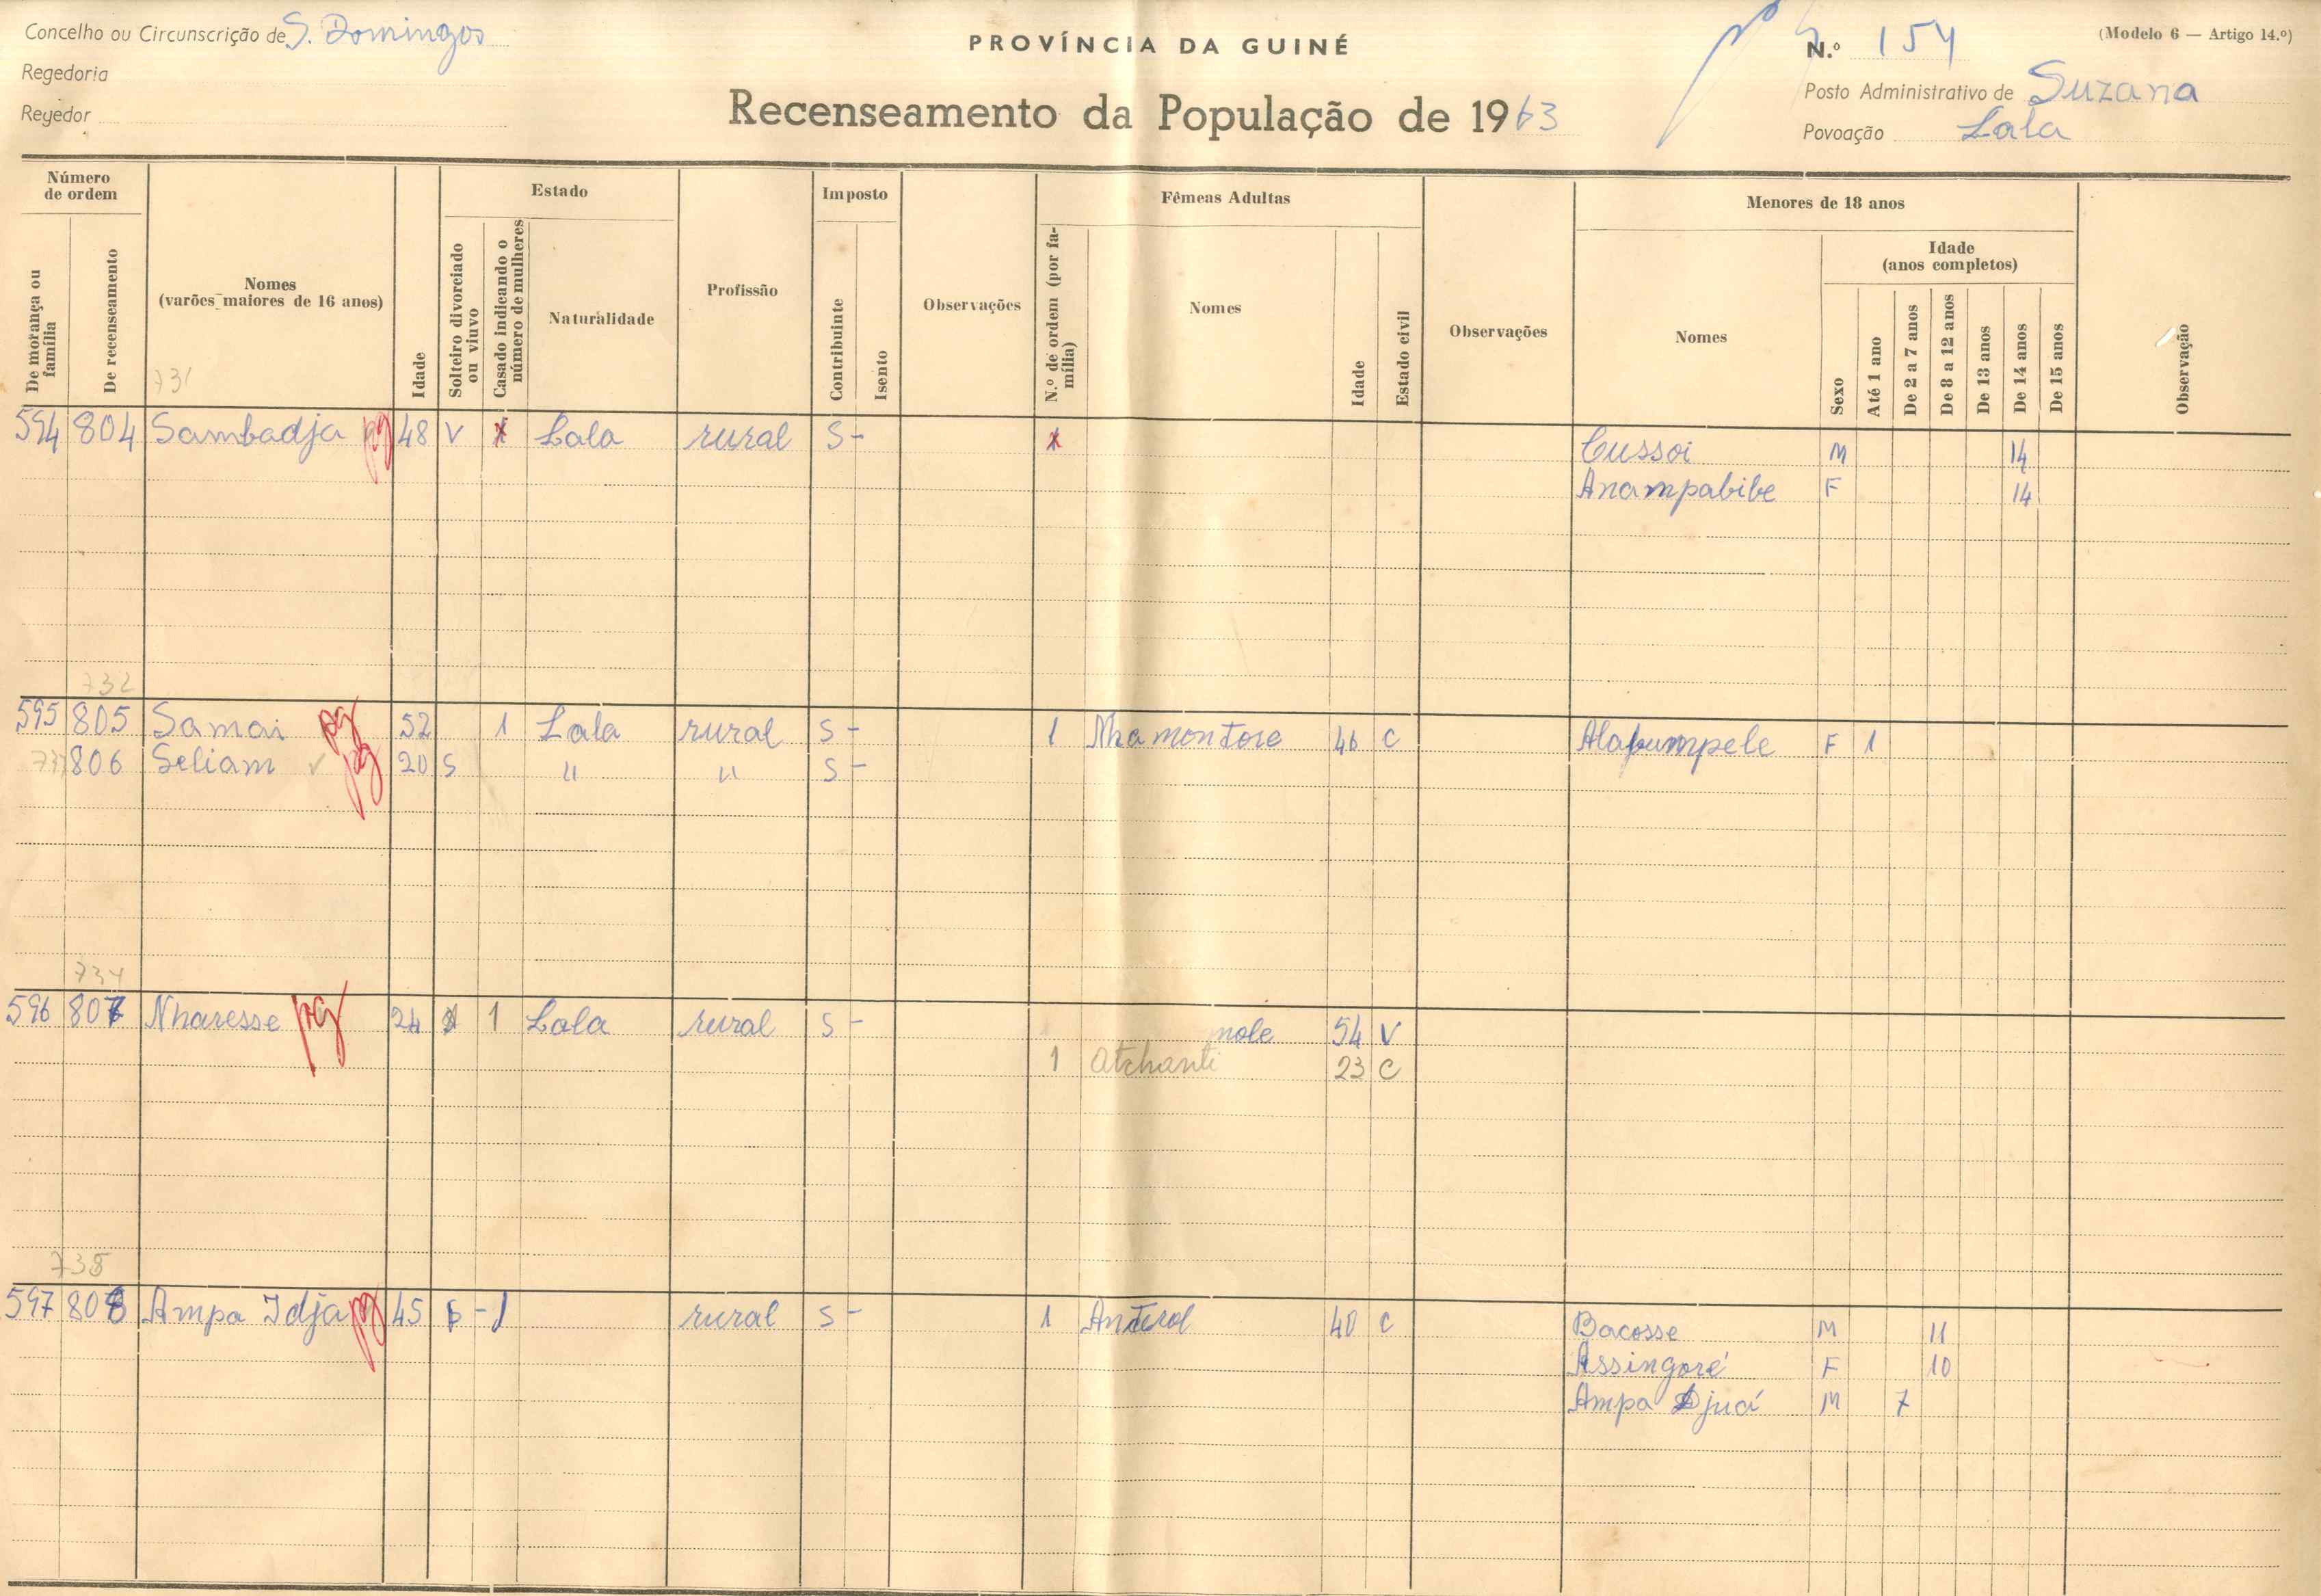 Concelho ou Circunscrição de S. Domingos
Regedoria
Regedor
PROVÍNCIA DA GUINÉ
Recenseamento da População de 1963
(Modelo 6 — Artigo 14.º)
N.º 154
Posto Administrativo de Suzana
Povoação Lala
Número de ordem
De morança ou família
De recenseamento
Nomes (varões maiores de 16 anos)
Idade
Estado
Solteiro divorciado ou viuvo
Casado indicando o número de mulheres
Naturalidade
Profissão
Imposto
Contribuinte
Isento
Observações
Fêmeas Adultas
N.º de ordem (por família)
Nomes
Idade
Estado civil
Observações
Menores de 18 anos
Nomes
Sexo
Idade (anos completos)
Até 1 ano
De 2 a 7 anos
De 8 a 12 anos
De 13 anos
De 14 anos
De 15 anos
Observação
731
594 804 Sambadja pg 48 V x Lala rural S - x
Cussoi M 14
Anampabibe F 14
732
595 805 Samai pg 52 1 Lala rural S - 1 Nhamontore 46 C F 1
806 Seliam pg 20 S " " S -
734
596 807 Nharesse pg 24 1 Lala rural S - nole 54 V
1 Atchanti 23 C
735
597 808 Ampa Idja pg 45 - 1 rural S - 1 40 C Bacosse M 11
Assingoré F 10
Ampa Djuá M 7